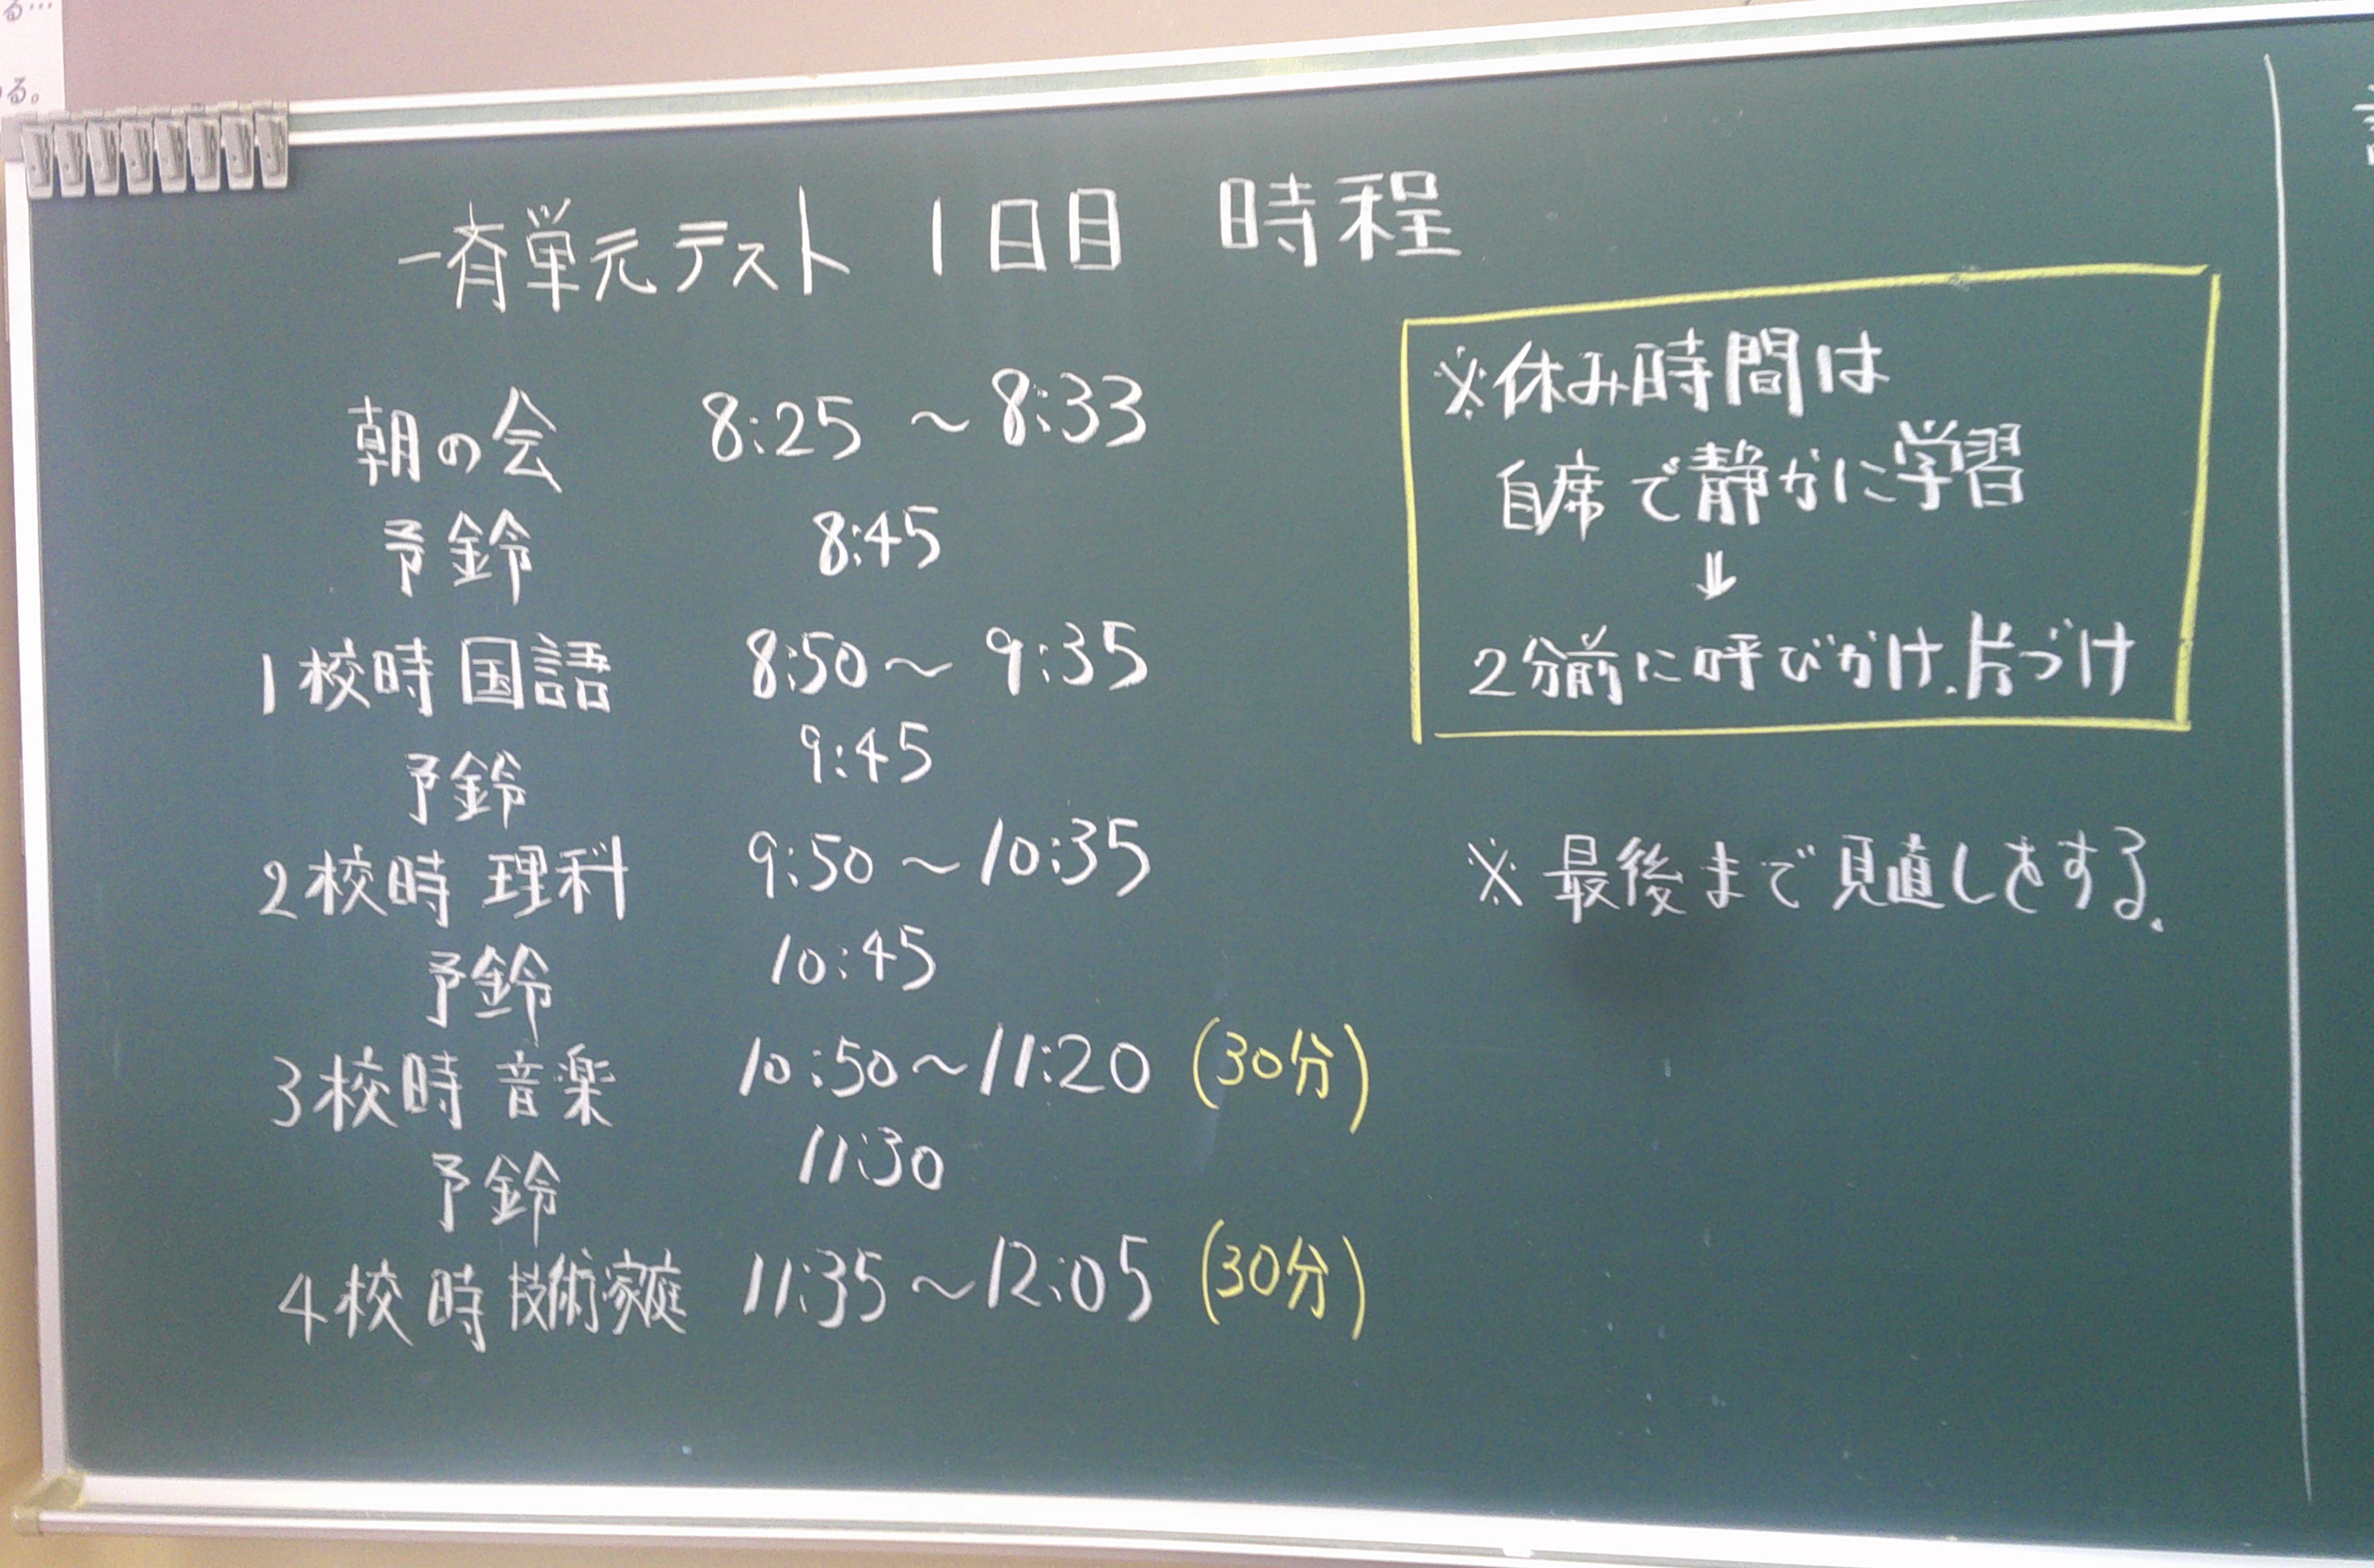 る…
る。
一斉単元テスト 1日目 時程
朝の会 8:25 ～ 8:33
予鈴 8:45
1校時 国語 8:50～ 9:35
予鈴 9:45
2校時 理科 9:50 ～10:35
予鈴 10:45
3校時 音楽 10:50～11:20 (30分)
予鈴 11:30
4校時 技術家庭 11:35～12:05 (30分)
※休み時間は
自席で静かに学習
↓
2分前に呼びかけ、片づけ
※ 最後まで見直しをする。